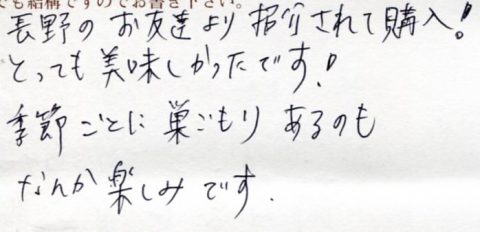 でも結構ですのでお書き下さい。
長野のお友達より招介されて購入!
とっても美味しかったです!
季節ごとに巣ごもりあるのも
なんか楽しみです.